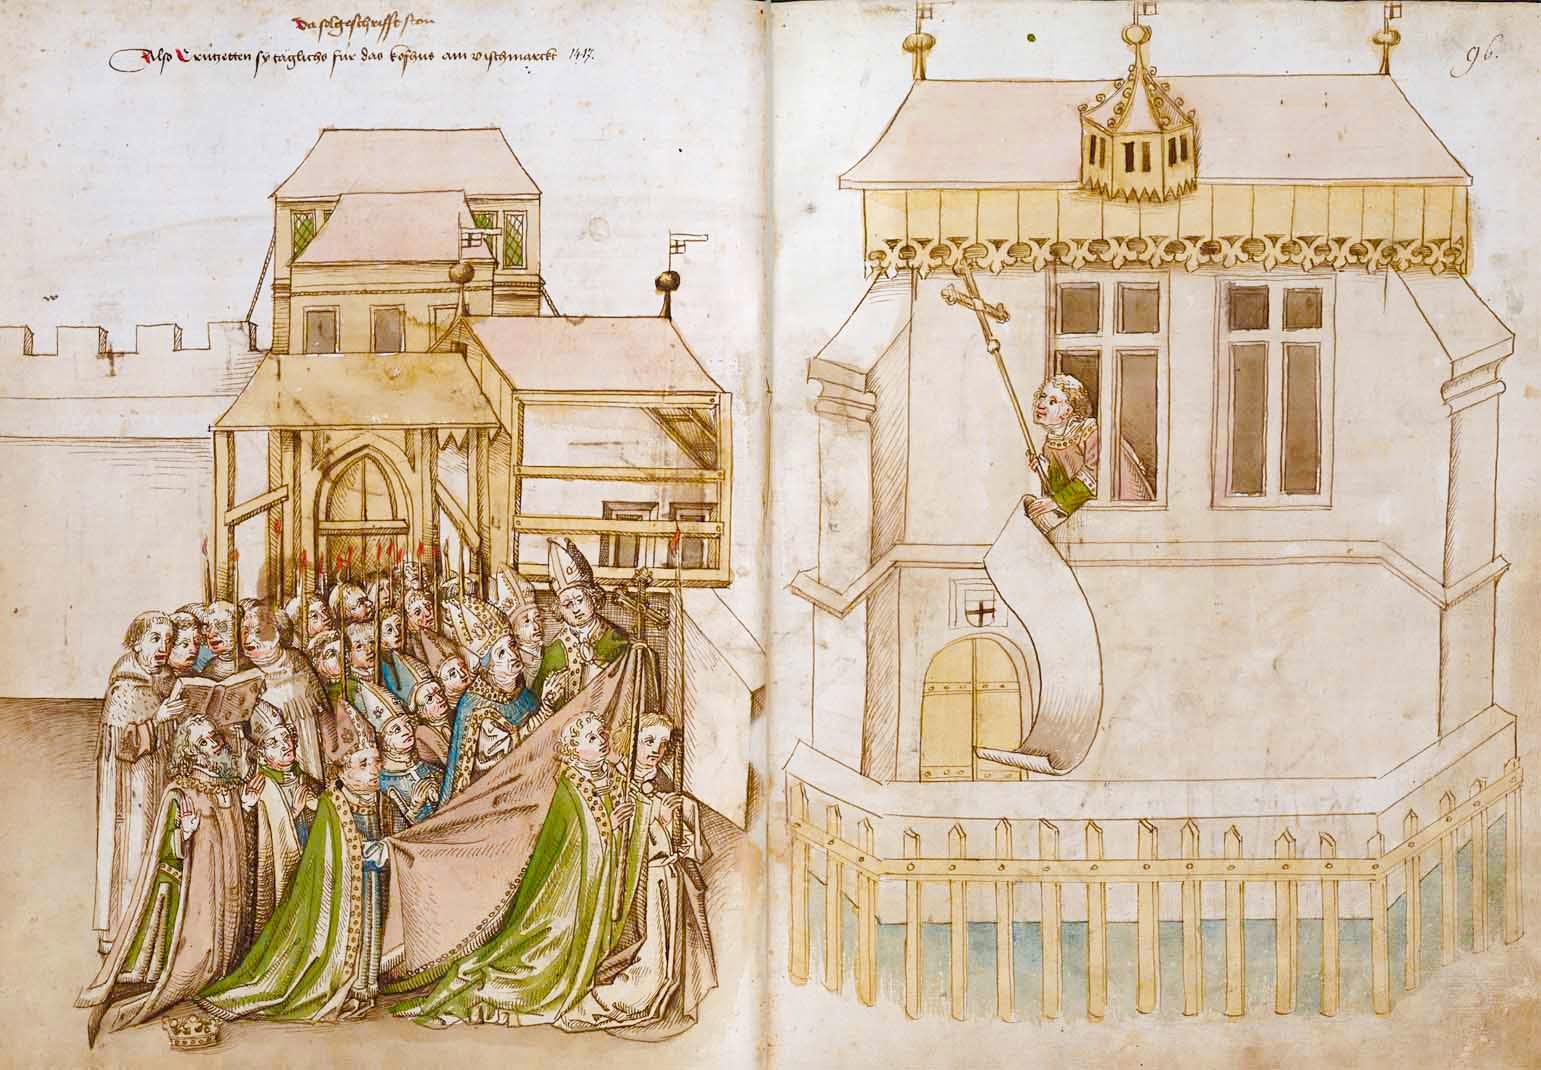 da folgeschrifft ston
Also Crützetten sy täglichs für das kofhus am vischmarckt 1417.
96.